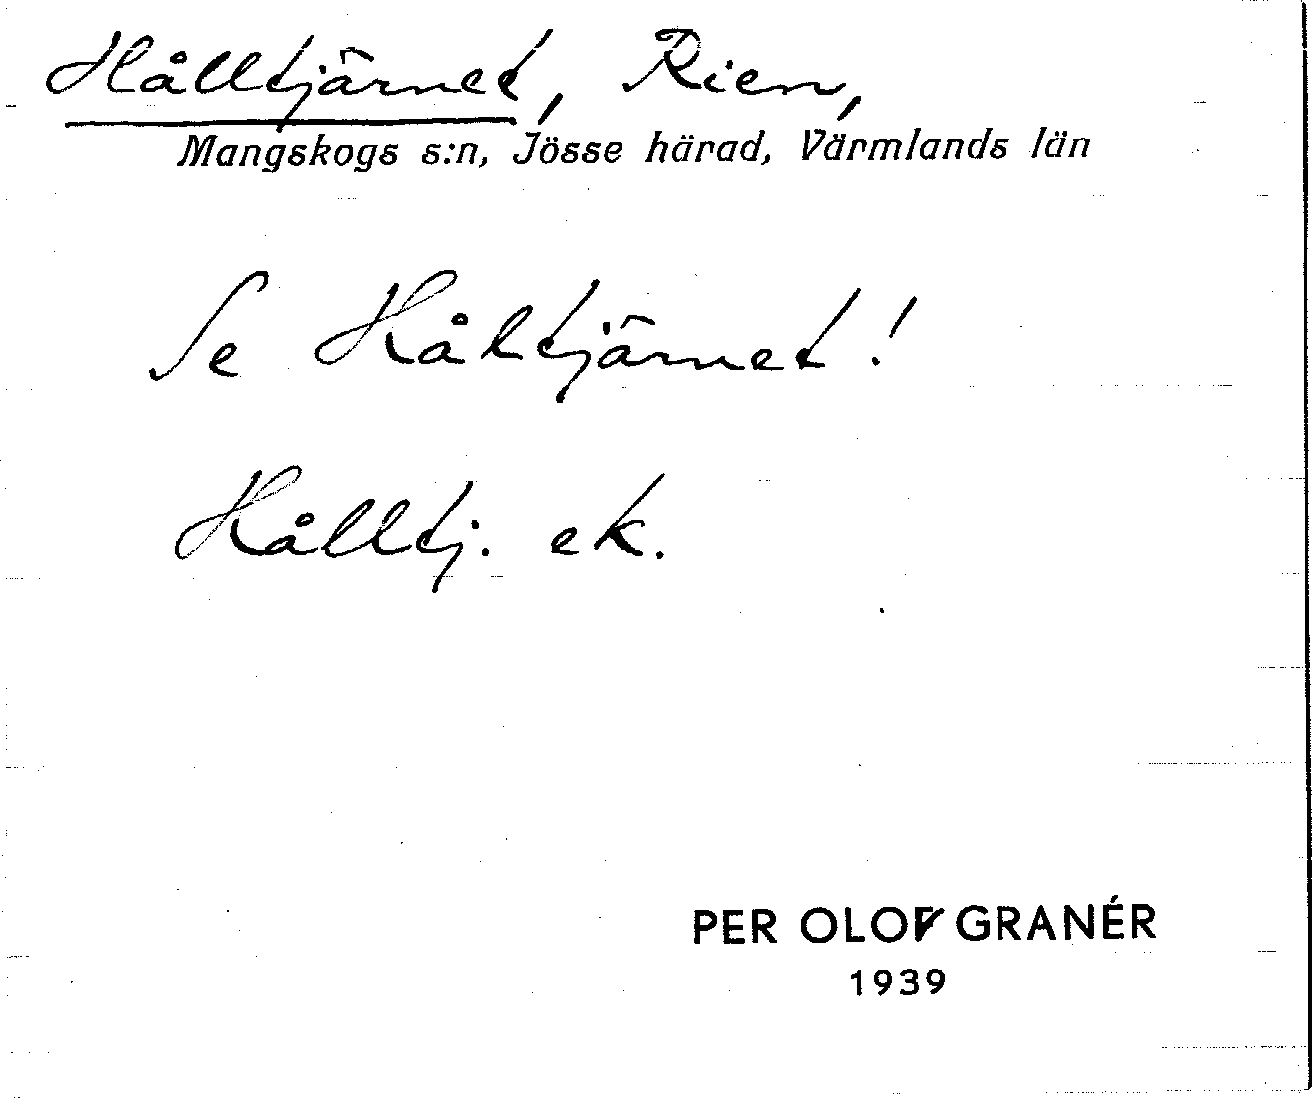 Hålltjärnet, Rien,
Mangskogs s:n, Jösse härad, Värmlands län
Se Håltjärnet!
Hålltj. ek.
PER OLOV GRANÉR
1939